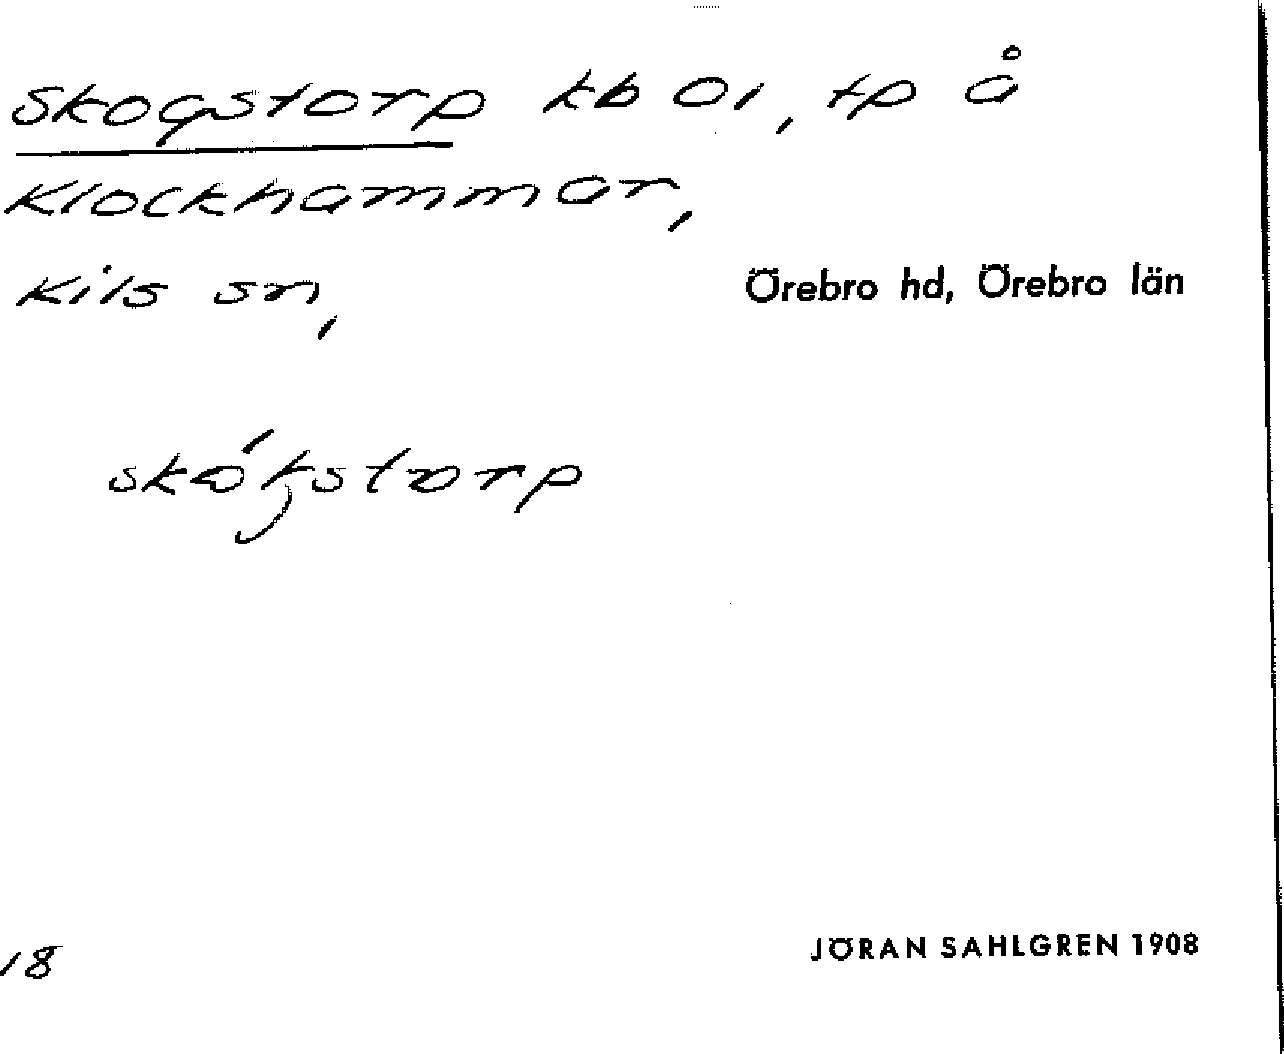 Skogstorp kb OI, tp å
Klockhammar,
Kils sn,
Örebro hd, Örebro län
18
JÖRAN SAHLGREN 1908